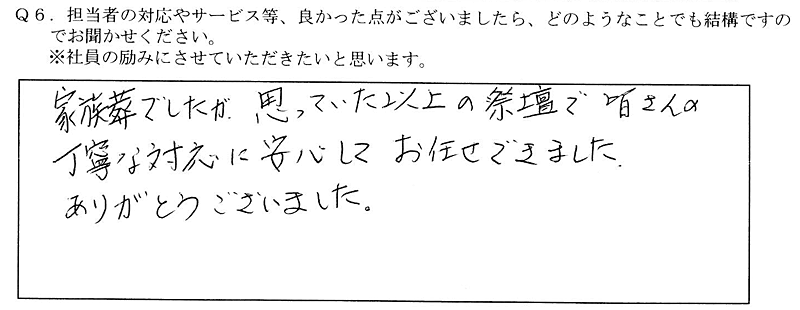 Q6．担当者の対応やサービス等、良かった点がございましたら、どのようなことでも結構ですの
でお聞かせください。
※社員の励みにさせていただきたいと思います。
家族葬でしたが、思っていた以上の祭壇で皆さんの
丁寧な対応に安心して お任せできました。
ありがとうございました。